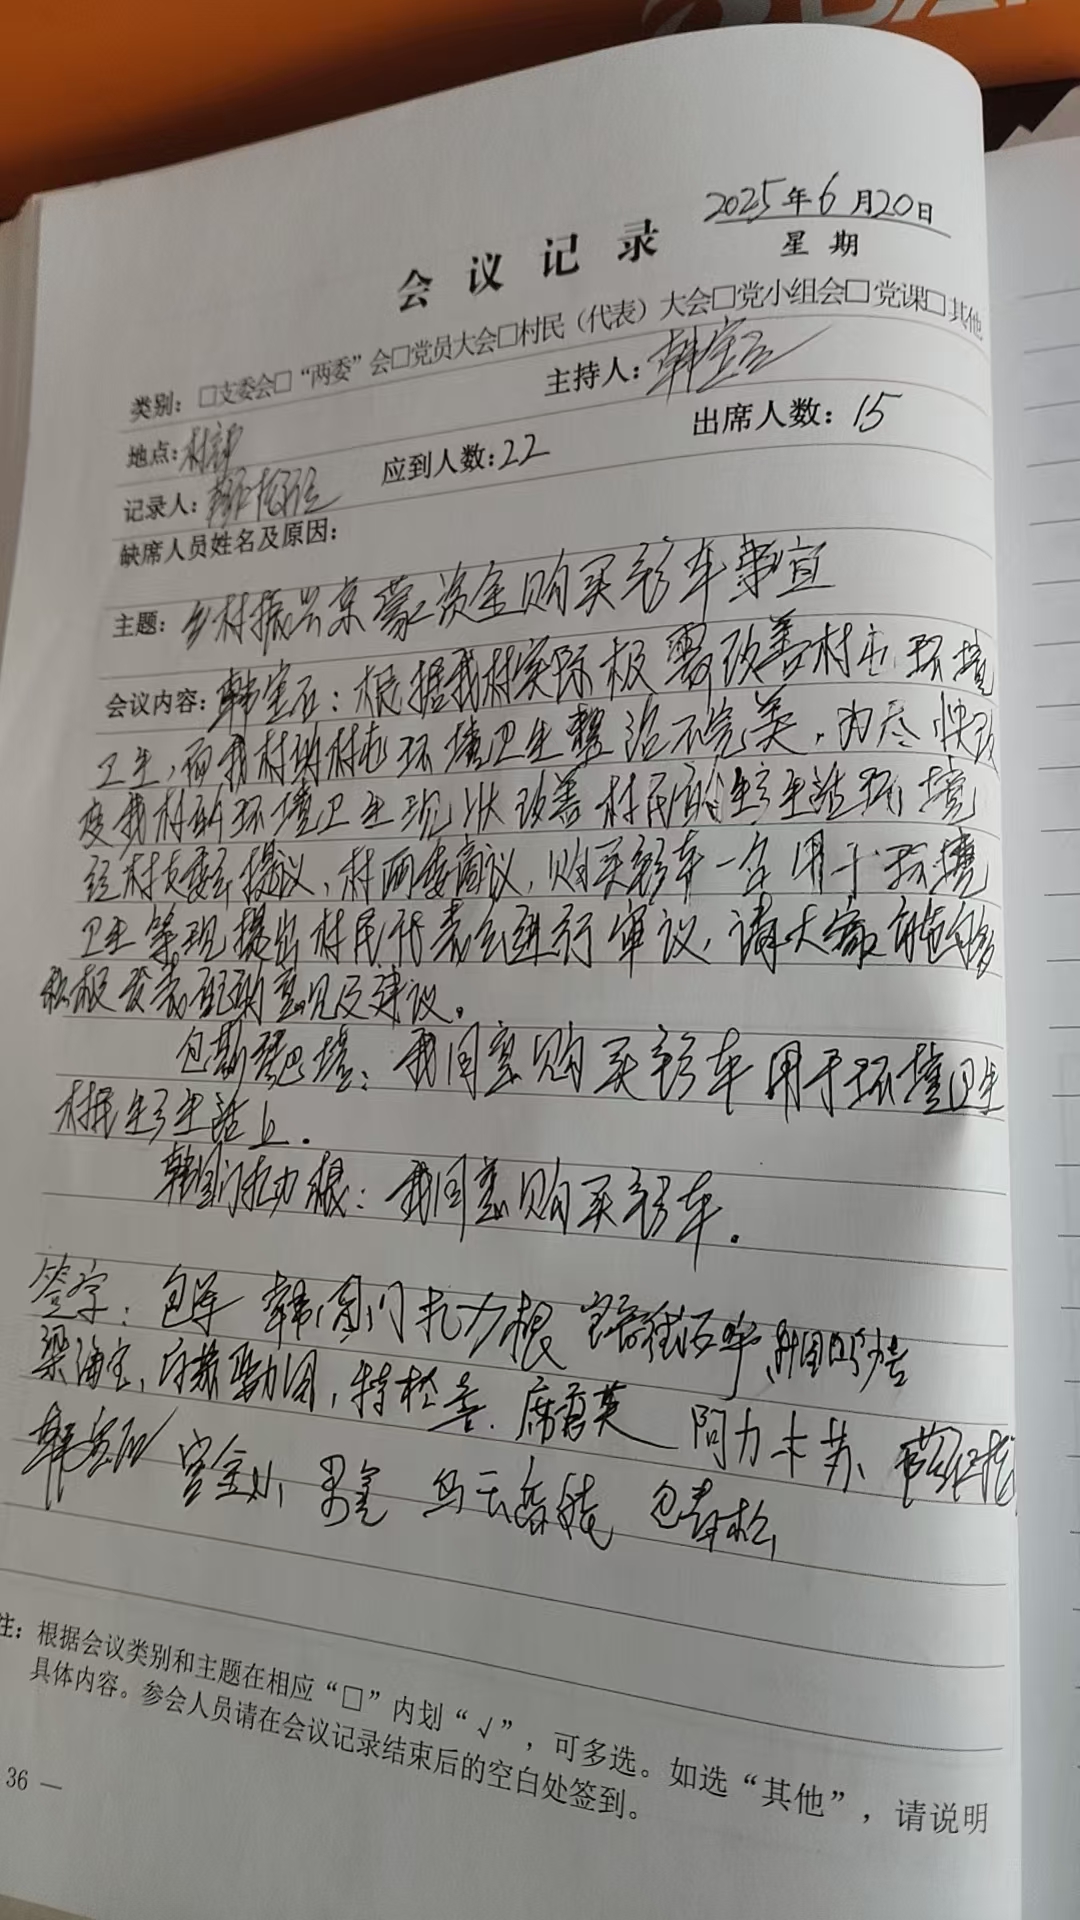 2025年6月20日
星期
会议记录
类别：□支委会□“两委”会□党员大会□村民（代表）大会□党小组会□党课□其他
地点：村部 主持人：韩宝石
记录人： 应到人数：22 出席人数：15
缺席人员姓名及原因：
主题：乡村振兴京蒙资金购买 车事宜
会议内容：韩宝石：根据我村实际极需改善村屯环境
卫生，而我村的村屯环境卫生整治不完美，为尽快改
变我村的环境卫生现状改善村民的生产生活环境
经村支委会提议，村两委商议，购买 车一台用于环境
卫生等现提出村民代表会进行审议，请大家
积极发表 的意见及建议。
包斯琴巴塔：我同意购买 车用于环境卫生
村民生产生活上。
韩图门扎力根：我同意购买 车。
签字：包军 韩图门扎力根
梁海宝， 特松喜
阿力木苏、
乌云 包青松
注：根据会议类别和主题在相应“□”内划“√”，可多选。如选“其他”，请说明
具体内容。参会人员请在会议记录结束后的空白处签到。
36 —